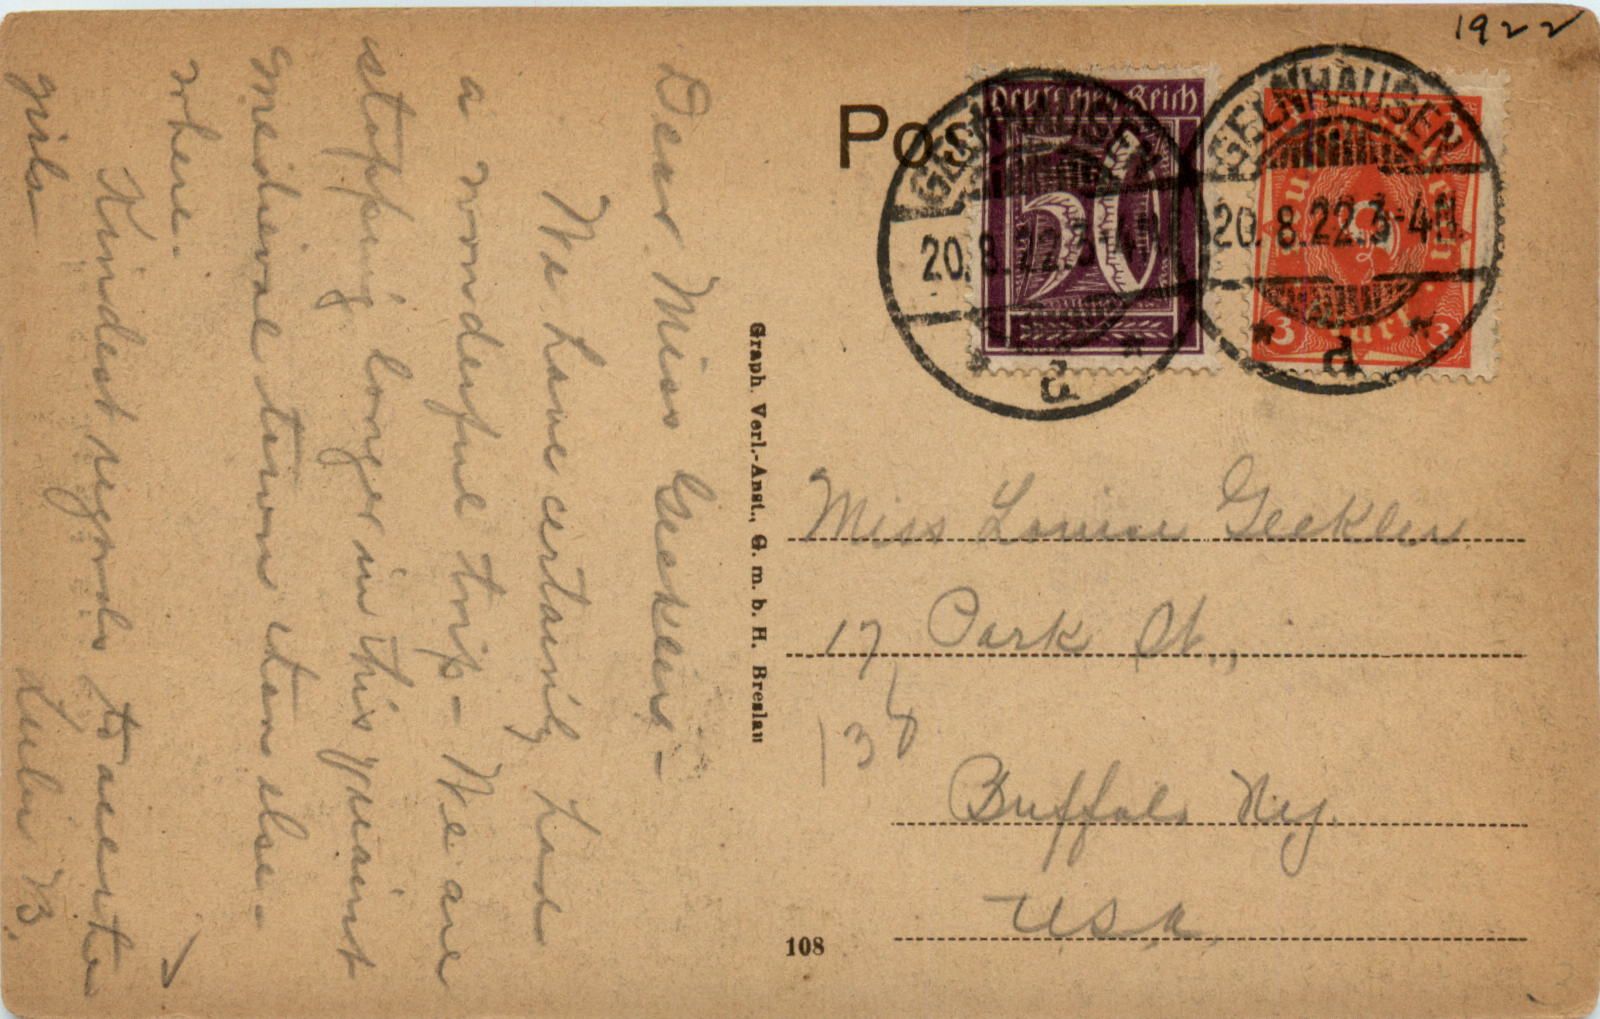 1922
Po
Deutsches Reich
50
GELNHAUSEN
20.8.22.3-4N.
* d *
GELNHAUSEN
20.8.22.3-4N.
* d *
3 Mark 3
Dear Miss Geckler –
We have certainly had
a wonderful trip – We are
stopping longer in this quaint
mediieval town than else-
where.
Kindest regards to all the
girls
Lulu B.
Graph. Verl.-Anst., G. m. b. H. Breslau
Miss Louise Geckler
17 Park St.,
138
Buffalo N.y.
USA.
108